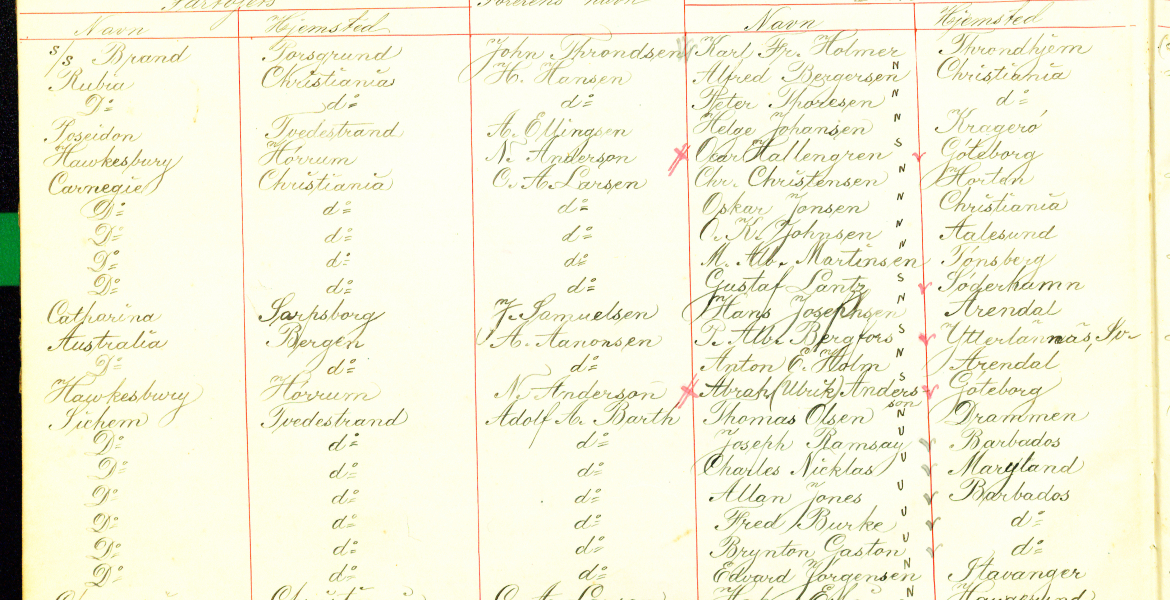 Fartøjets Førerens navn
Navn Hjemsted Navn Hjemsted
s/s Brand Porsgrund John Throndsen Karl Fr. Holmer Throndhjem
Rubia Christiania H. Hansen Alfred Bergersen N Christiania
Do do do Peter Thoresen N do
Poseidon Tvedestrand A. Ellingsen Helge Johansen N Kragerö
Hawkesbury Hörrum N. Anderson Oscar Hallengren S Göteborg
Carnegie Christiania O. A. Larsen Chr. Christensen N Horten
Do do do Oskar Jonsen N Christiania
Do do do O. K. Johnsen N Aalesund
Do do do M. Alb. Martinsen N Tönsberg
Do do do Gustaf Lantz S Söderhamn
Catharina Sarpsborg F. Samuelsen Hans Josephsen N Arendal
Australia Bergen A. Aanonsen P. Alb. Bergfors S Ytterlännäs, Sv.
Do do do Anton E. Holm N Arendal
Hawkesbury Hörrum N. Anderson Abrah (Ulrik) Anderson S Göteborg
Sichem Tvedestrand Adolf A. Barth Thomas Olsen N Drammen
Do do do Joseph Ramsay U Barbados
Do do do Charles Nicklas U Maryland
Do do do Allan Jones U Barbados
Do do do Fred Burke U do
Do do do Brynton Gaston U do
Do do do Edvard Jörgensen N Stavanger